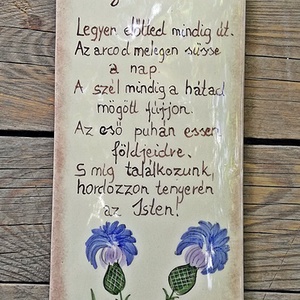 Legyen előtted mindig út.
Az arcod melegen süsse
a nap.
A szél mindig a hátad
mögött fújjon.
Az eső puhán essen
földjeidre.
S míg találkozunk,
hordozzon tenyerén
az Isten!